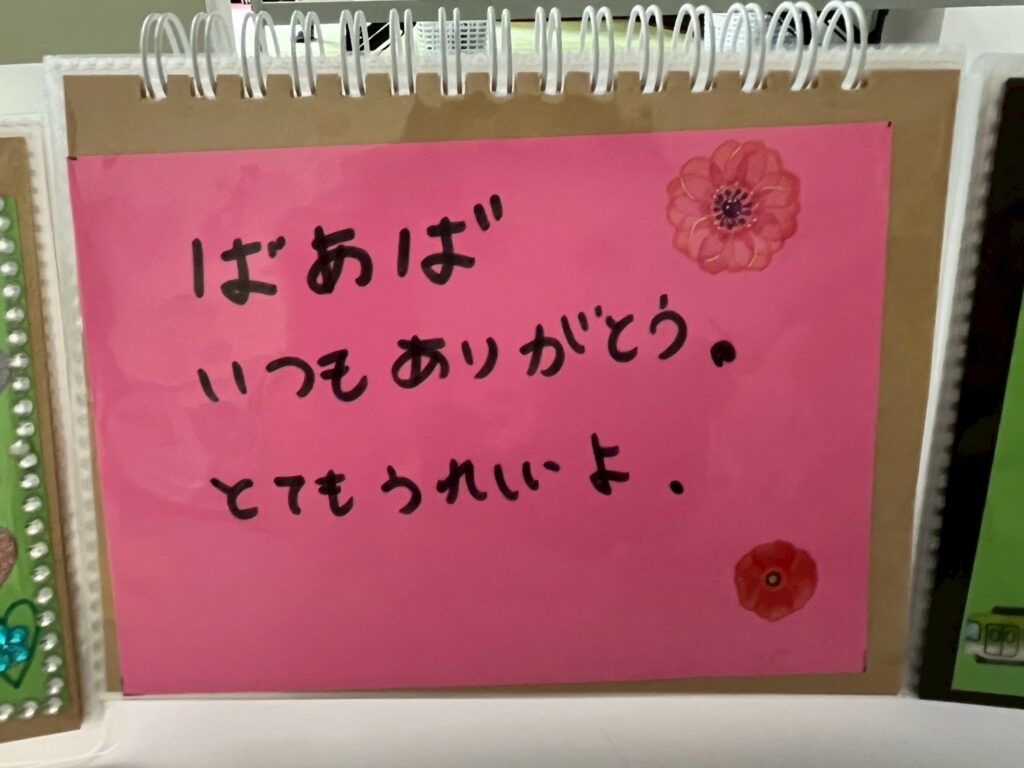 ばあば
いつもありがとう。
とてもうれしいよ.